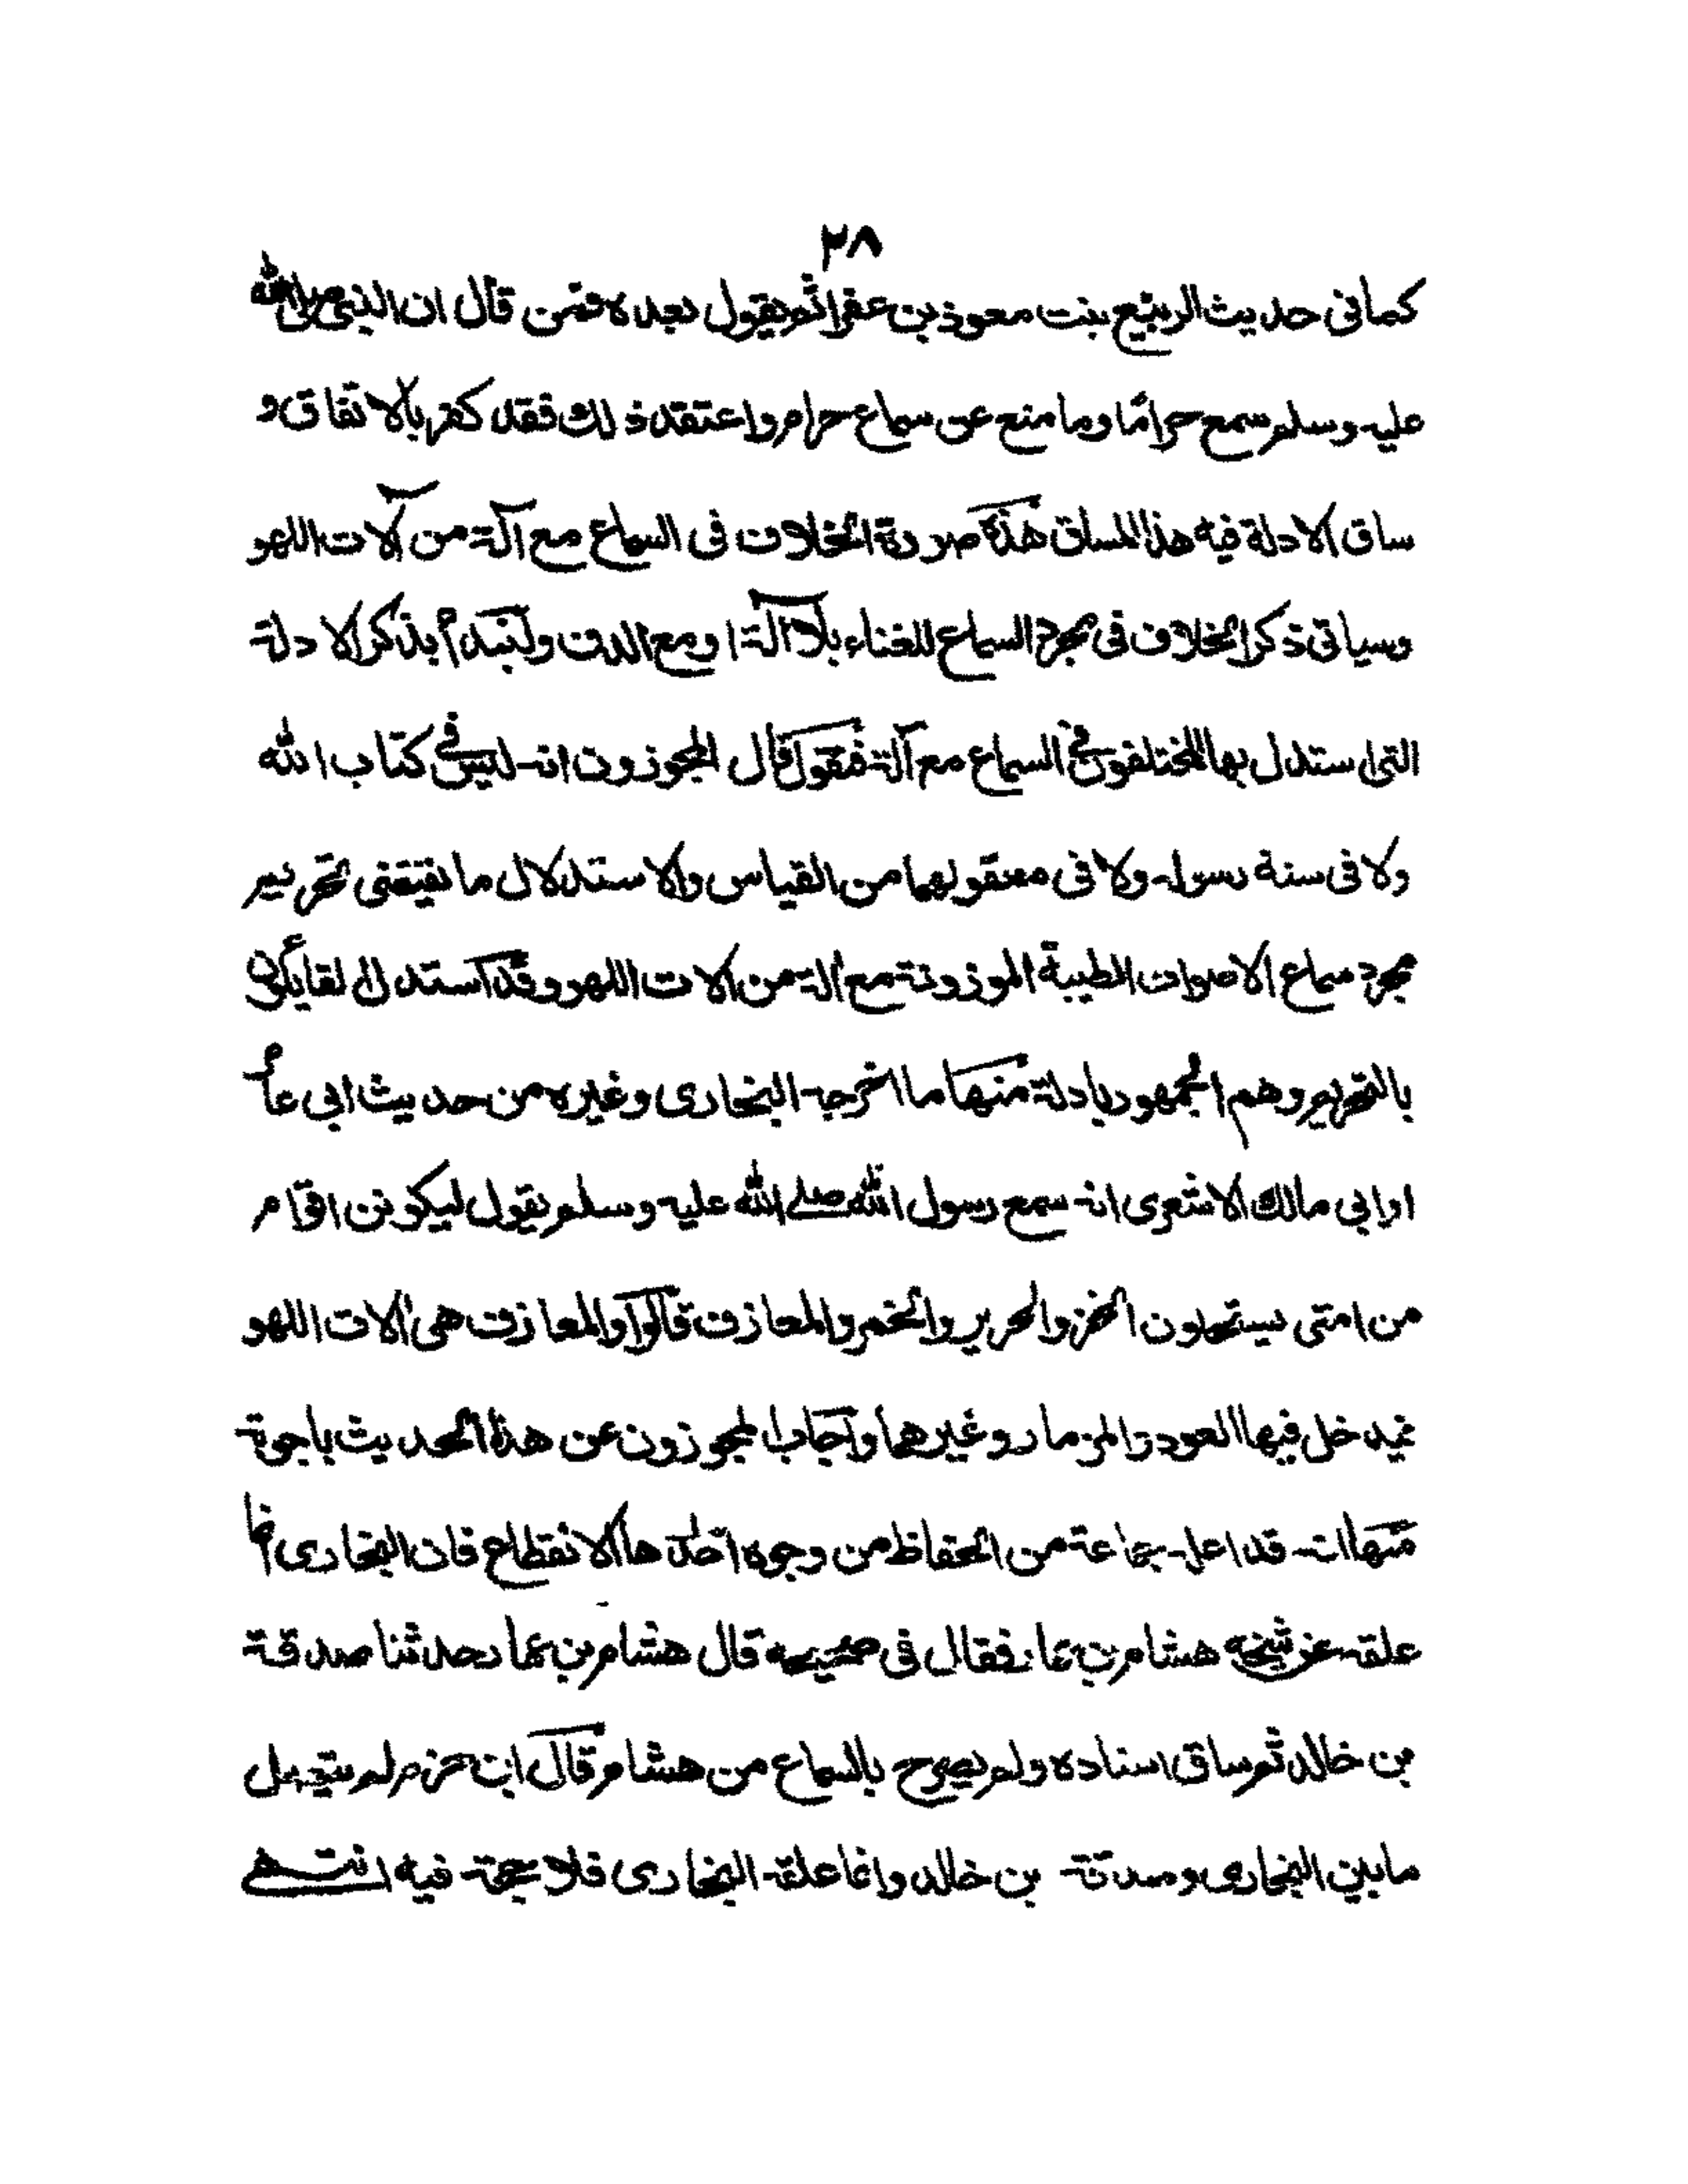 ٢٨
كما فى حديث الربيع بنت معوذ بن عفرا ثم يقول بعده فمن قال ان النبى صلى الله
عليه وسلم سمع حرامًا وما منع عن سماع حرام واعتقد ذلك فقد كفر بالاتفاق و
ساق الادلة فيه هذا المساق هذه صورة الخلاف فى السماع مع آلة من آلات اللهو
وسياتى ذكر الخلاف فى مجرد السماع للغناء بلا آلة او مع الدف ولنبدأ بذكر الادلة
التى استدل بها المختلفون فى السماع مع آلة فنقول قال المجوزون انه ليس فى كتاب الله
ولا فى سنة رسوله ولا فى معقولهما من القياس والاستدلال ما يقتضى تحريم
مجرد سماع الاصوات الطيبة الموزونة مع آلة من آلات اللهو وقد استدل القائلون
بالتحريم وهم الجمهور بادلة منها ما اخرجه البخارى وغيره من حديث ابى عامر
او ابى مالك الاشعرى انه سمع رسول الله صلے الله عليه وسلم يقول ليكونن اقوام
من امتى يستحلون الخز والحرير والخمر والمعازف قالوا والمعازف هى آلات اللهو
فيدخل فيها العود والمزمار وغيرهما واجاب المجوزون عن هذا الحديث باجوبة
منها انه قد اعله جماعة من الحفاظ من وجوه احدها الانقطاع فان البخارى انما
علقه عن شيخه هشام بن عمار فقال فى صحيحه قال هشام بن عمار حدثنا صدقة
بن خالد ثم ساق اسناده ولم يصرح بالسماع من هشام قال ابن حزم لم يتصل
ما بين البخارى وصدقة بن خالد وانما علقه البخارى فلا حجة فيه انتهے